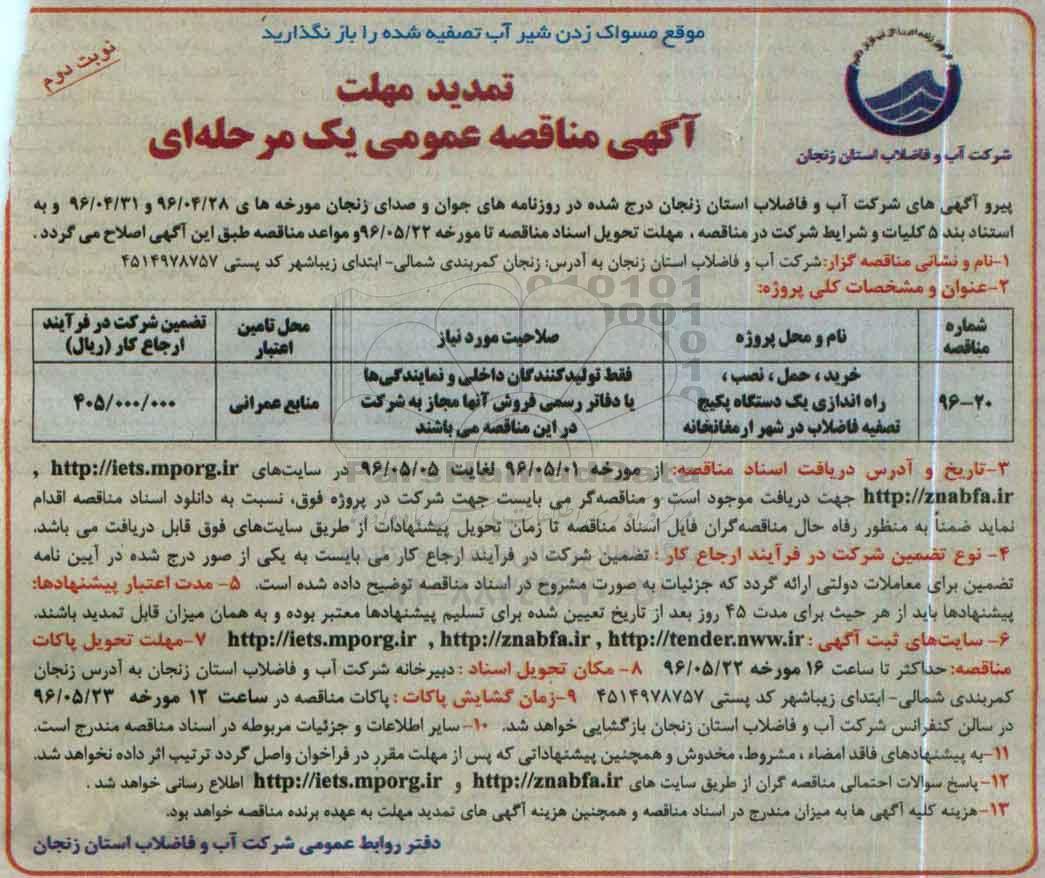 موقع مسواک زدن شیر آب تصفیه شده را باز نگذارید
نوبت دوم
تمدید مهلت
آگهی مناقصه عمومی یک مرحله‌ای
شرکت آب و فاضلاب استان زنجان
پیرو آگهی های شرکت آب و فاضلاب استان زنجان درج شده در روزنامه های جوان و صدای زنجان مورخه ها ی ۹۶/۰۴/۲۸ و ۹۶/۰۴/۳۱ و به
استناد بند ۵ کلیات و شرایط شرکت در مناقصه ، مهلت تحویل اسناد مناقصه تا مورخه ۹۶/۰۵/۲۲و مواعد مناقصه طبق این آگهی اصلاح می گردد .
۱-نام و نشانی مناقصه گزار:شرکت آب و فاضلاب استان زنجان به آدرس: زنجان کمربندی شمالی- ابتدای زیباشهر کد پستی ۴۵۱۴۹۷۸۷۵۷
۲-عنوان و مشخصات کلی پروژه:
شماره مناقصه | نام و محل پروژه | صلاحیت مورد نیاز | محل تامین اعتبار | تضمین شرکت در فرآیند ارجاع کار (ریال)
۹۶-۲۰ | خرید ، حمل ، نصب ، راه اندازی یک دستگاه پکیج تصفیه فاضلاب در شهر ارمغانخانه | فقط تولیدکنندگان داخلی و نمایندگی‌ها یا دفاتر رسمی فروش آنها مجاز به شرکت در این مناقصه می باشند | منابع عمرانی | ۴۰۵/۰۰۰/۰۰۰
۳-تاریخ و آدرس دریافت اسناد مناقصه: از مورخه ۹۶/۰۵/۰۱ لغایت ۹۶/۰۵/۰۵ در سایت‌های http://iets.mporg.ir ,
http://znabfa.ir جهت دریافت موجود است و مناقصه‌گر می بایست جهت شرکت در پروژه فوق، نسبت به دانلود اسناد مناقصه اقدام
نماید ضمناً به منظور رفاه حال مناقصه‌گران فایل اسناد مناقصه تا زمان تحویل پیشنهادات از طریق سایت‌های فوق قابل دریافت می باشد.
۴- نوع تضمین شرکت در فرآیند ارجاع کار : تضمین شرکت در فرآیند ارجاع کار می بایست به یکی از صور درج شده در آیین نامه
تضمین برای معاملات دولتی ارائه گردد که جزئیات به صورت مشروح در اسناد مناقصه توضیح داده شده است. ۵- مدت اعتبار پیشنهادها:
پیشنهادها باید از هر حیث برای مدت ۴۵ روز بعد از تاریخ تعیین شده برای تسلیم پیشنهادها معتبر بوده و به همان میزان قابل تمدید باشند.
۶- سایت‌های ثبت آگهی : http://iets.mporg.ir , http://znabfa.ir , http://tender.nww.ir ۷-مهلت تحویل پاکات
مناقصه: حداکثر تا ساعت ۱۶ مورخه ۹۶/۰۵/۲۲ ۸- مکان تحویل اسناد : دبیرخانه شرکت آب و فاضلاب استان زنجان به آدرس زنجان
کمربندی شمالی- ابتدای زیباشهر کد پستی ۴۵۱۴۹۷۸۷۵۷ ۹-زمان گشایش پاکات : پاکات مناقصه در ساعت ۱۲ مورخه ۹۶/۰۵/۲۳
در سالن کنفرانس شرکت آب و فاضلاب استان زنجان بازگشایی خواهد شد. ۱۰- سایر اطلاعات و جزئیات مربوطه در اسناد مناقصه مندرج است.
۱۱-به پیشنهادهای فاقد امضاء ، مشروط، مخدوش و همچنین پیشنهاداتی که پس از مهلت مقرر در فراخوان واصل گردد ترتیب اثر داده نخواهد شد.
۱۲-پاسخ سوالات احتمالی مناقصه گران از طریق سایت های http://znabfa.ir و http://iets.mporg.ir اطلاع رسانی خواهد شد .
۱۳-هزینه کلیه آگهی ها به میزان مندرج در اسناد مناقصه و همچنین هزینه آگهی های تمدید مهلت به عهده برنده مناقصه خواهد بود.
دفتر روابط عمومی شرکت آب و فاضلاب استان زنجان